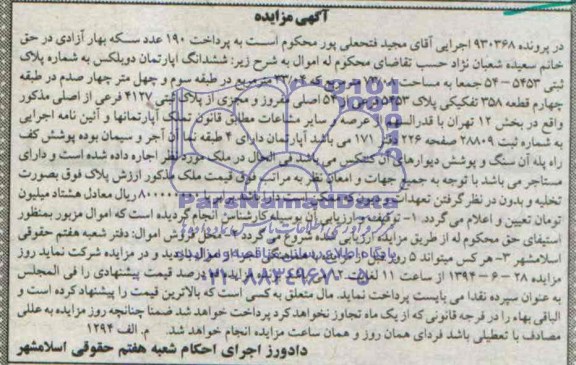 آگهی مزایده
در پرونده ۹۳۰۳۶۸ اجرایی آقای مجید فتحعلی پور محکوم است به پرداخت ۱۹۰ عدد سکه بهار آزادی در حق
خانم سعیده شعبان نژاد حسب تقاضای محکوم له اموال به شرح زیر: ششدانگ آپارتمان دوبلکس به شماره پلاک
ثبتی ۵۴۵۳ - ۵۴ جمعا به مساحت که متر مربع در طبقه سوم و چهل متر چهار صدم در طبقه
چهارم قطعه ۳۵۸ تفکیکی پلاک ۵۴۵۳ ۵۴ اصلی مفروز و مجزی از پلاک ثبتی ۴۱۲۷ فرعی از اصلی مذکور
واقع در بخش ۱۲ تهران با قدرالسهم از عرصه و سایر مشاعات مطابق قانون تملک آپارتمانها و آئین نامه اجرایی
به شماره ثبت ۲۸۸۰۹ صفحه ۲۲۶ دفتر ۱۷۱ می باشد آپارتمان دارای ۴ طبقه نما آن آجر و سیمان بوده پوشش کف
راه پله آن سنگ و پوشش دیوارهای آن می باشد فی الحال در ملک مورد نظر اجاره داده شده است و دارای
مستاجر می باشد با توجه به جمیع جهات و امعان نظر به مراتب فوق قیمت ملک مذکور ارزش پلاک فوق بصورت
تخلیه و بدون در نظر گرفتن تعهدات ریال معادل هشتاد میلیون
تومان تعیین و اعلام می گردد. ۱- توقیف و ارزیابی آن بوسیله کارشناس انجام گردیده است که اموال مزبور بمنظور
استیفای حق محکوم له از طریق مزایده ارزیابی شده شروع می گردد ۲- محل فروش اموال: دفتر شعبه هفتم حقوقی
اسلامشهر ۳- هر کس میتواند ۵ روز قبل از دید و در مزایده شرکت نماید روز
مزایده ۲۸ - ۶ - ۱۳۹۴ از ساعت ۱۱ لغایت ۱۲ درصد قیمت پیشنهادی را فی المجلس
به عنوان سپرده نقدا می بایست پرداخت نماید. مال متعلق به کسی است که بالاترین قیمت را پیشنهاد کرده است و
الباقی بهاء را در فرجه قانونی که از یک ماه تجاوز نخواهد کرد پرداخت خواهد شد ضمنا چنانچه روز مزایده به عللی
مصادف با تعطیلی باشد فردای همان روز و همان ساعت مزایده انجام خواهد شد. م. الف ۱۲۹۴
دادورز اجرای احکام شعبه هفتم حقوقی اسلامشهر
ParsNamadData
۰۲۱-۸۸۳۴۹۶۷۰-۵